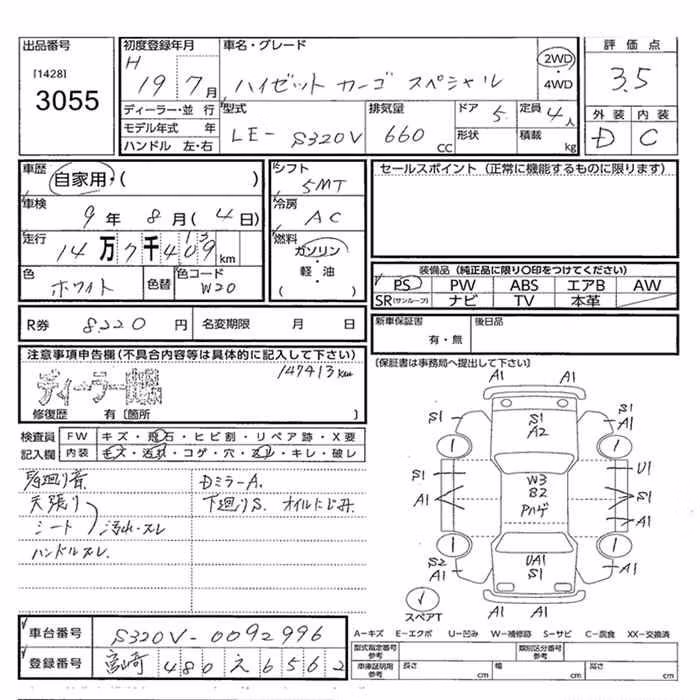 出品番号
[1428]
3055
初度登録年月
H 19 7月
車名・グレード
ハイゼット カーゴ スペシャル
2WD
・
4WD
評価点
3.5
外装 内装
D C
ディーラー・並 行
モデル年式 年
ハンドル 左・右
型式
LE- S320V
排気量
660 CC
ドア 5
形状
定員 4人
積載 kg
車歴
自家用・( )
車検
9年 8月 (4日)
走行
14万7千409km
13
色
ホワイト
色替
色コード
W20
シフト
5MT
冷房
AC
燃料
ガソリン
・
軽・油
( )
セールスポイント (正常に機能するものに限ります)
装備品 (純正品に限り〇印をつけてください)
PS PW ABS エアB AW
SR(サンルーフ) ナビ TV 本革
R券 8220 円 名変期限 月 日
新車保証書
有・無
後日品
(保証書は事務局へ提出して下さい)
注意事項申告欄(不具合内容等は具体的に記入して下さい)
147413km
ディーラー
修復歴 有 〔箇所 〕
検査員 FW キズ・飛石・ヒビ割・リペア跡・X要
記入欄 内装 キズ・汚れ・コゲ・穴・スレ・キレ・破レ
天張り
シート
汚れ・スレ
ハンドルスレ.
DミラーA.
下廻りS. オイルにじみ.
A1 A1
A1
S1 S1
S1
A2
1 1
S1 U1
A1 S1
A1
W3
B2
Pハゲ
1 1
S2 A1
A1
UA1
S1
A1 A1
A1
スペアT
車台番号 S320V-0092996
登録番号 宮崎 480 え 6562
A−キズ E−エクボ U−凹み W−補修跡 S−サビ C−腐食 XX−交換済
型式指定番号
参考
類別区分番号
参考
車庫証明用
参考
長さ cm 幅 cm 高さ cm